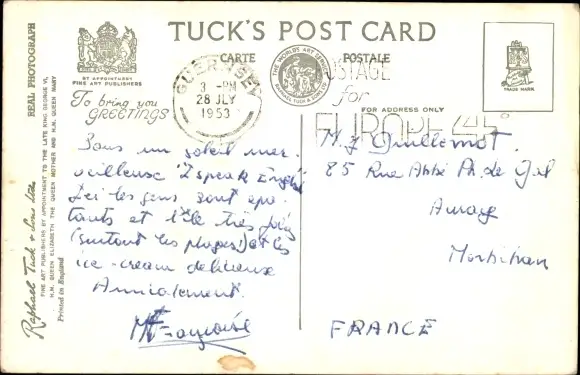 TUCK'S POST CARD
CARTE POSTALE
BY APPOINTMENT
FINE ART PUBLISHERS
THE WORLDS ART SERVICE
RAPHAEL TUCK & SONS LTD
TRADE MARK
FOR ADDRESS ONLY
To bring you
GREETINGS
GUERNSEY
3 - PM
28 JLY
1953
POSTAGE
for
EUROPE
REAL PHOTOGRAPH
Raphael Tuck & Sons Ltd.
FINE ART PUBLISHERS BY APPOINTMENT TO THE LATE KING GEORGE VI,
H.M. QUEEN ELIZABETH THE QUEEN MOTHER AND H.M. QUEEN MARY
Printed in England
Sous un soleil mer-
veilleux "I speak English"
Ici les gens sont épa-
tants et l'île très jolie
(surtout les plages) et les
ice-cream délicieuse
Amicalement.
Françoise
M. J Guillemot.
85 Rue Abbé Ph. de Gal
Auray
Morbihan
FRANCE